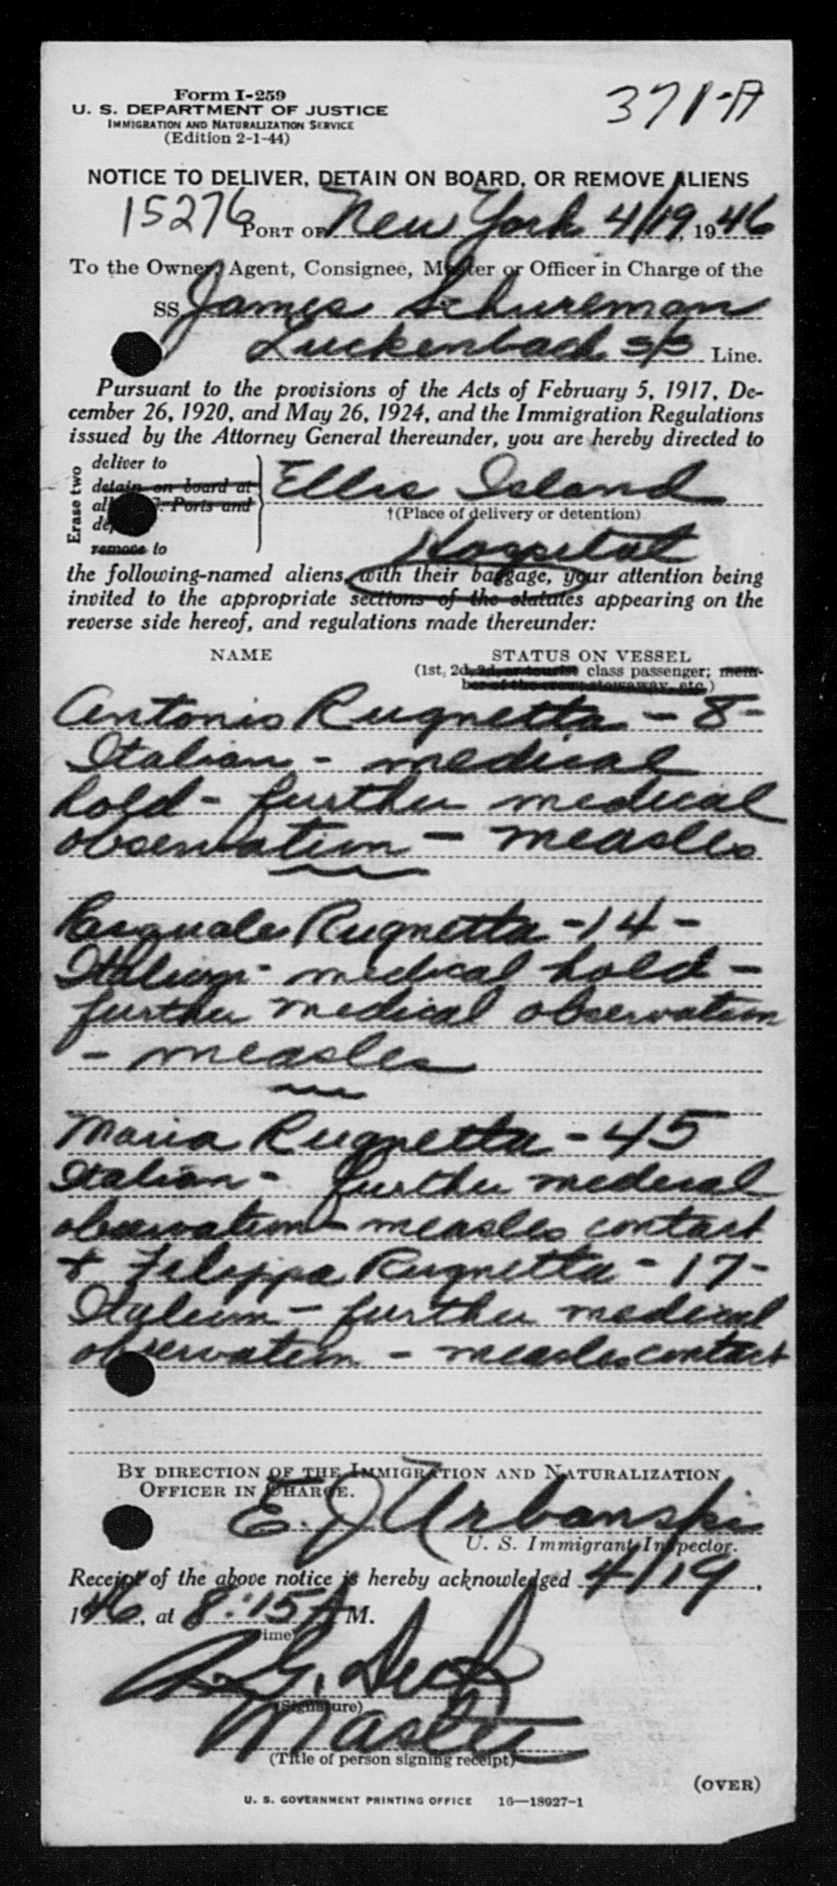 Form I-259
371-A
U. S. DEPARTMENT OF JUSTICE
IMMIGRATION AND NATURALIZATION SERVICE
(Edition 2-1-44)
NOTICE TO DELIVER, DETAIN ON BOARD, OR REMOVE ALIENS
15276 PORT OF New York 4/19, 1946
To the Owner, Agent, Consignee, Master or Officer in Charge of the
SS James Schureman
Luckenbach S/S Line.
Pursuant to the provisions of the Acts of February 5, 1917, De-
cember 26, 1920, and May 26, 1924, and the Immigration Regulations
issued by the Attorney General thereunder, you are hereby directed to
Erase two
deliver to
detain on board at
Ports and
remove to
Ellis Island
†(Place of delivery or detention)
Hospital
the following-named aliens, with their baggage, your attention being
invited to the appropriate sections of the statutes appearing on the
reverse side hereof, and regulations made thereunder:
NAME STATUS ON VESSEL
(1st, 2d, 3d, or tourist class passenger; mem-
ber of the crew, stowaway, etc.)
Antonio Rugnetta - 8-
Italian - medical
hold - further medical
observation - measles
Pasquale Rugnetta -14-
Italian - medical hold -
further medical observation
- measles
Maria Rugnetta - 45
Italian - further medical
observation - measles contact
+ Filippa Rugnetta - 17-
Italian - further medical
observation - measles contact
BY DIRECTION OF THE IMMIGRATION AND NATURALIZATION
OFFICER IN CHARGE.
E. J Urbanski
U. S. Immigrant Inspector.
Receipt of the above notice is hereby acknowledged 4/19,
1946, at 8:15 A M.
(Time)
G.
(Signature)
Master
(Title of person signing receipt)
(OVER)
U. S. GOVERNMENT PRINTING OFFICE 16—18927-1